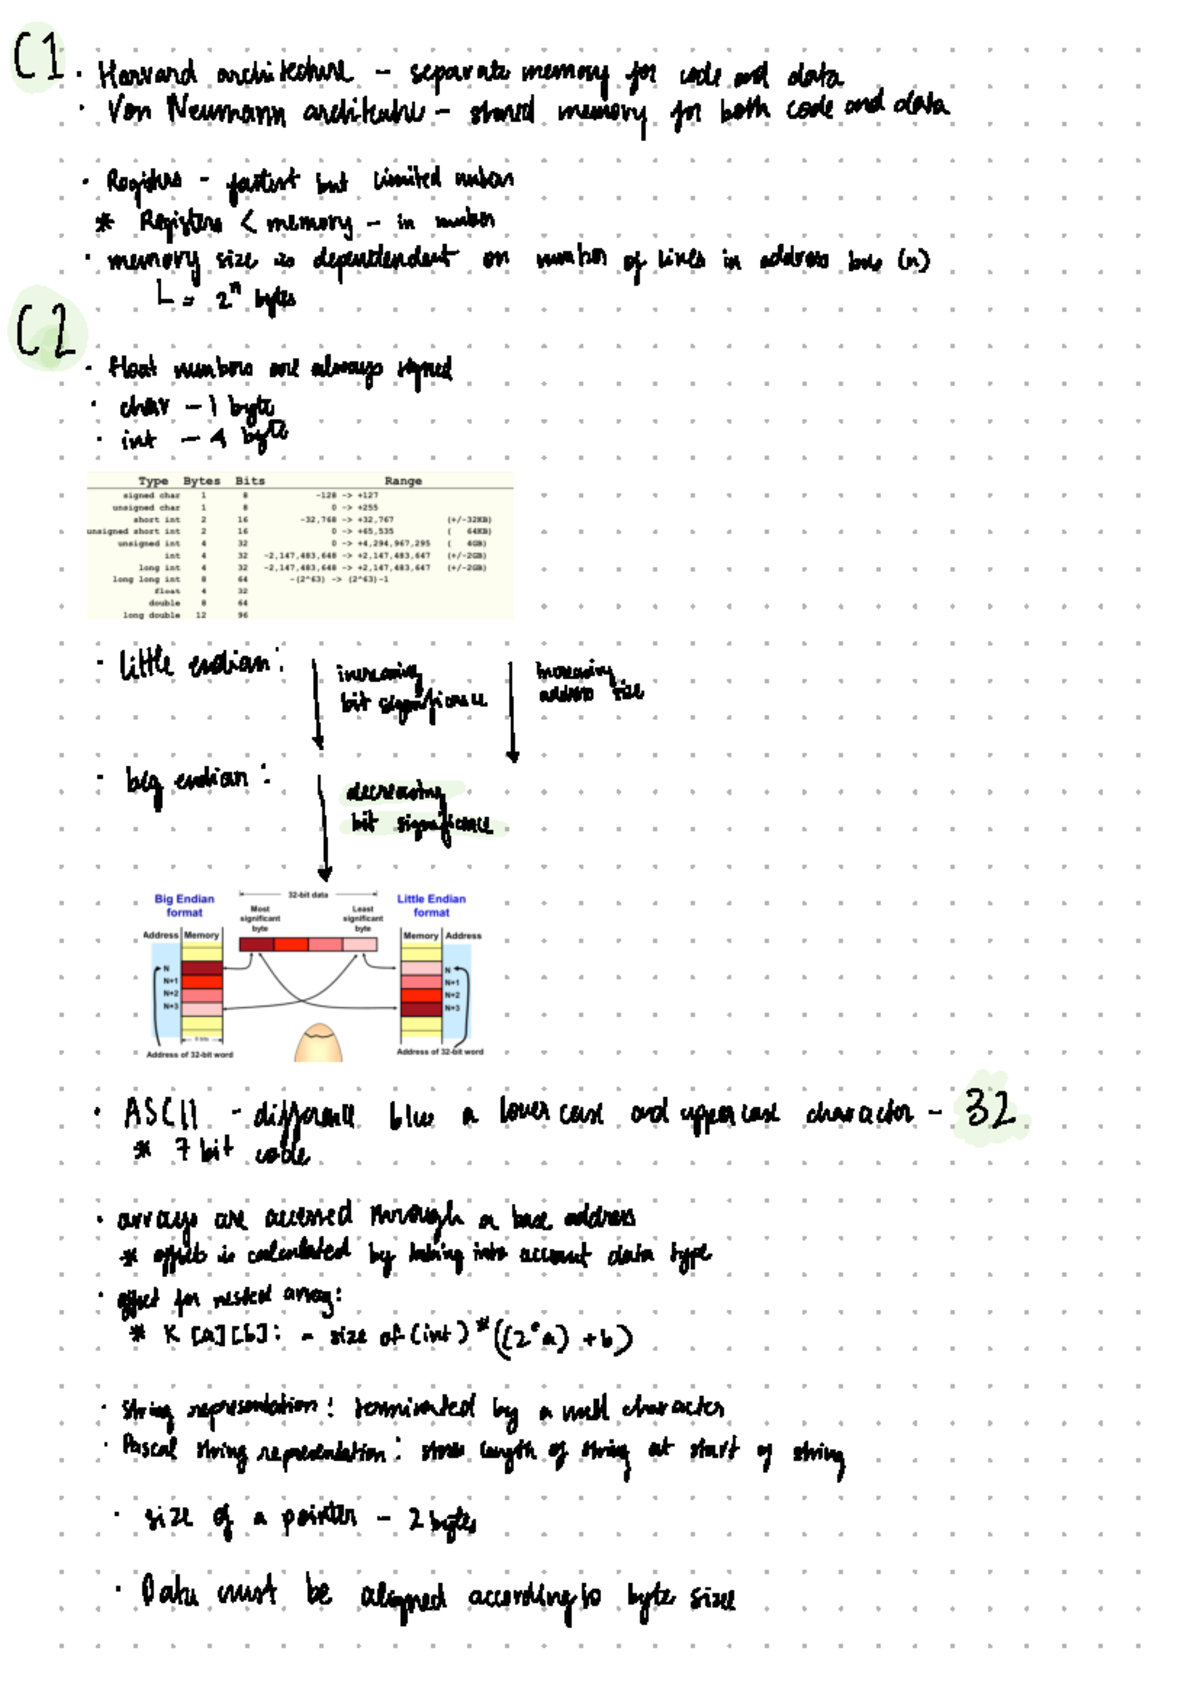 C1
· Harvard architecture – separate memory for code and data
· Von Neumann architecture – shared memory for both code and data
· Registers – fastest but limited number
* Registers < memory – in number
· memory size is dependendent on number of lines in address bus (n)
L = 2ⁿ bytes
C2
· float numbers are always signed
· char – 1 byte
· int – 4 byte
Type Bytes Bits Range
signed char 1 8 -128 -> +127
unsigned char 1 8 0 -> +255
short int 2 16 -32,768 -> +32,767 (+/-32KB)
unsigned short int 2 16 0 -> +65,535 ( 64KB)
unsigned int 4 32 0 -> +4,294,967,295 ( 4GB)
int 4 32 -2,147,483,648 -> +2,147,483,647 (+/-2GB)
long int 4 32 -2,147,483,648 -> +2,147,483,647 (+/-2GB)
long long int 8 64 -(2^63) -> (2^63)-1
float 4 32
double 8 64
long double 12 96
· little endian: increasing increasing
bit significance address size
· big endian: decreasing
bit significance
Big Endian 32-bit data Little Endian
format Most Least format
significant significant
byte byte
Address Memory Memory Address
N N
N+1 N+1
N+2 N+2
N+3 N+3
8 bits
Address of 32-bit word Address of 32-bit word
· ASCII – difference b/w a lower case and upper case character – 32
* 7 bit code
· arrays are accessed through a base address
* offset is calculated by taking into account data type
· offset for nested array:
* K [a][b]: – size of (int) * ((2*a) + b)
· String representation: terminated by a null character
· Pascal string representation: store length of string at start of string
· size of a pointer – 2 bytes
· Data must be aligned according to byte size